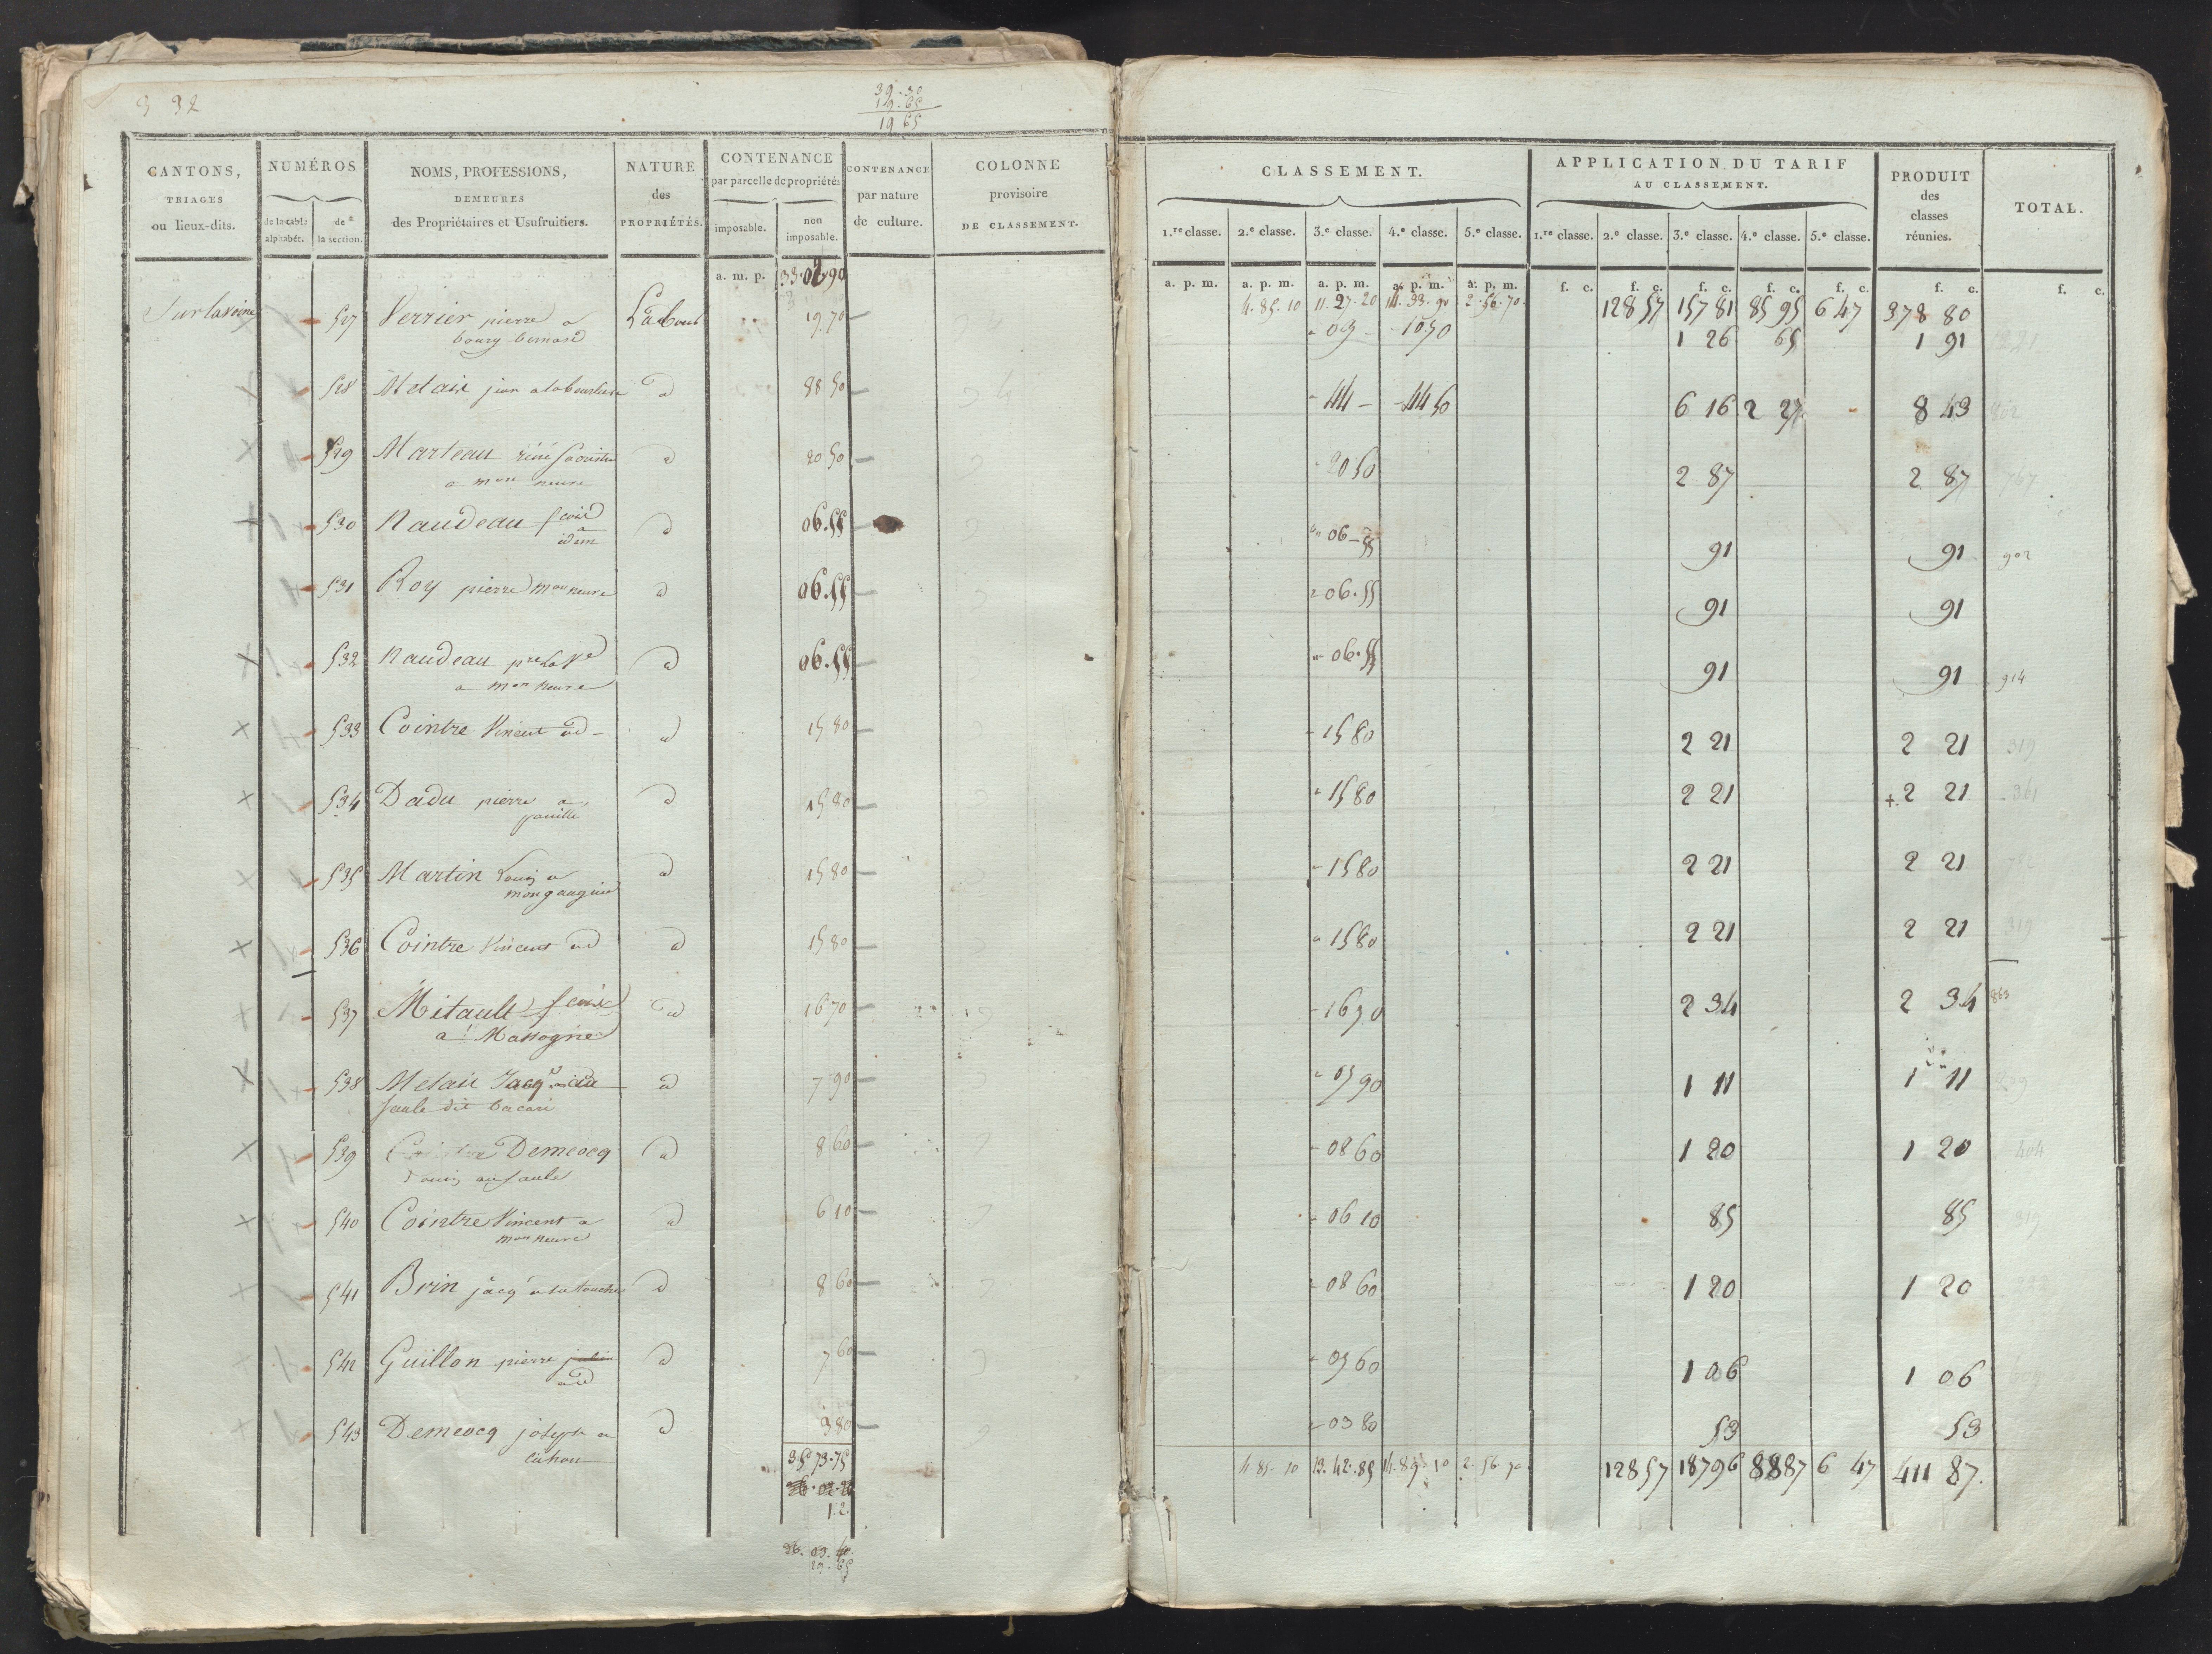 3 32
39..30
19..65
19 65
CANTONS, TRIAGES ou lieux-dits.
NUMÉROS
de la tabl: alphabét.
de la section.
NOMS, PROFESSIONS, DEMEURES des Propriétaires et Usufruitiers.
NATURE des PROPRIÉTÉS.
CONTENANCE par parcelle de propriétés
imposable.
non imposable.
CONTENANCE par nature de culture.
COLONNE provisoire DE CLASSEMENT.
CLASSEMENT.
1.re classe. 2.e classe. 3.e classe. 4.e classe. 5.e classe.
APPLICATION DU TARIF AU CLASSEMENT.
1.re classe. 2.e classe. 3.e classe. 4.e classe. 5.e classe.
PRODUIT des classes réunies.
TOTAL.
a. m. p. 33.02.90
a. p. m. a. p. m. a. p. m. a. p. m. a. p. m. f. c. f. c. f. c. f. c. f. c. f. c. f. c.
4.85.10 11.27.20 14.33.90 2.56.70 128 57 157 81 85 95 6 47 378 80
527 Verrier pierre a Labour 19.70 09 10.50 1 26 65 1 91
528 Metais d 88 50 44 44 50 6 16 2 27 8 43 802
529 Marteau d 20 50 20 50 2 87 2 87 767
a monneure
530 Naudeau d 06.55 06 55 91 91 902
a idem
531 Roy pierre monneure d 06.55 06.55 91 91
532 Naudeau d 06.55 06.55 91 91 914
a monneure
533 Cointre Vincent ad d 15 80 15 80 2 21 2 21 319
534 Dadu pierre a d 15 80 15 80 2 21 + 2 21 361
535 Martin Louis a d 15 80 15 80 2 21 2 21
536 Cointre Vincent ad d 15 80 15 80 2 21 2 21 319
537 Mitault d 16 70 16 70 2 34 2 34 863
a Massogne
538 Metais Jacq.s d 7 90 07 90 1 11 1 11
saule dit
539 Demeocq d 8 60 08 60 1 20 1 20 404
Louis au saule
540 Cointre Vincent a d 6 10 06 10 85 85 319
monneure
541 Brin jacq a la touche d 8 60 08 60 1 20 1 20
542 Guillon pierre d 7 60 07 60 1 06 1 06
ad
543 Demeocq joseph a d 3 80 03 80 53 53
cuhon
35 73.75 4.85.10 13.42.85 14.89.10 2.56.70 128 57 187 96 88 87 6 47 411 87.
1.2.
26.03.40.
29.65